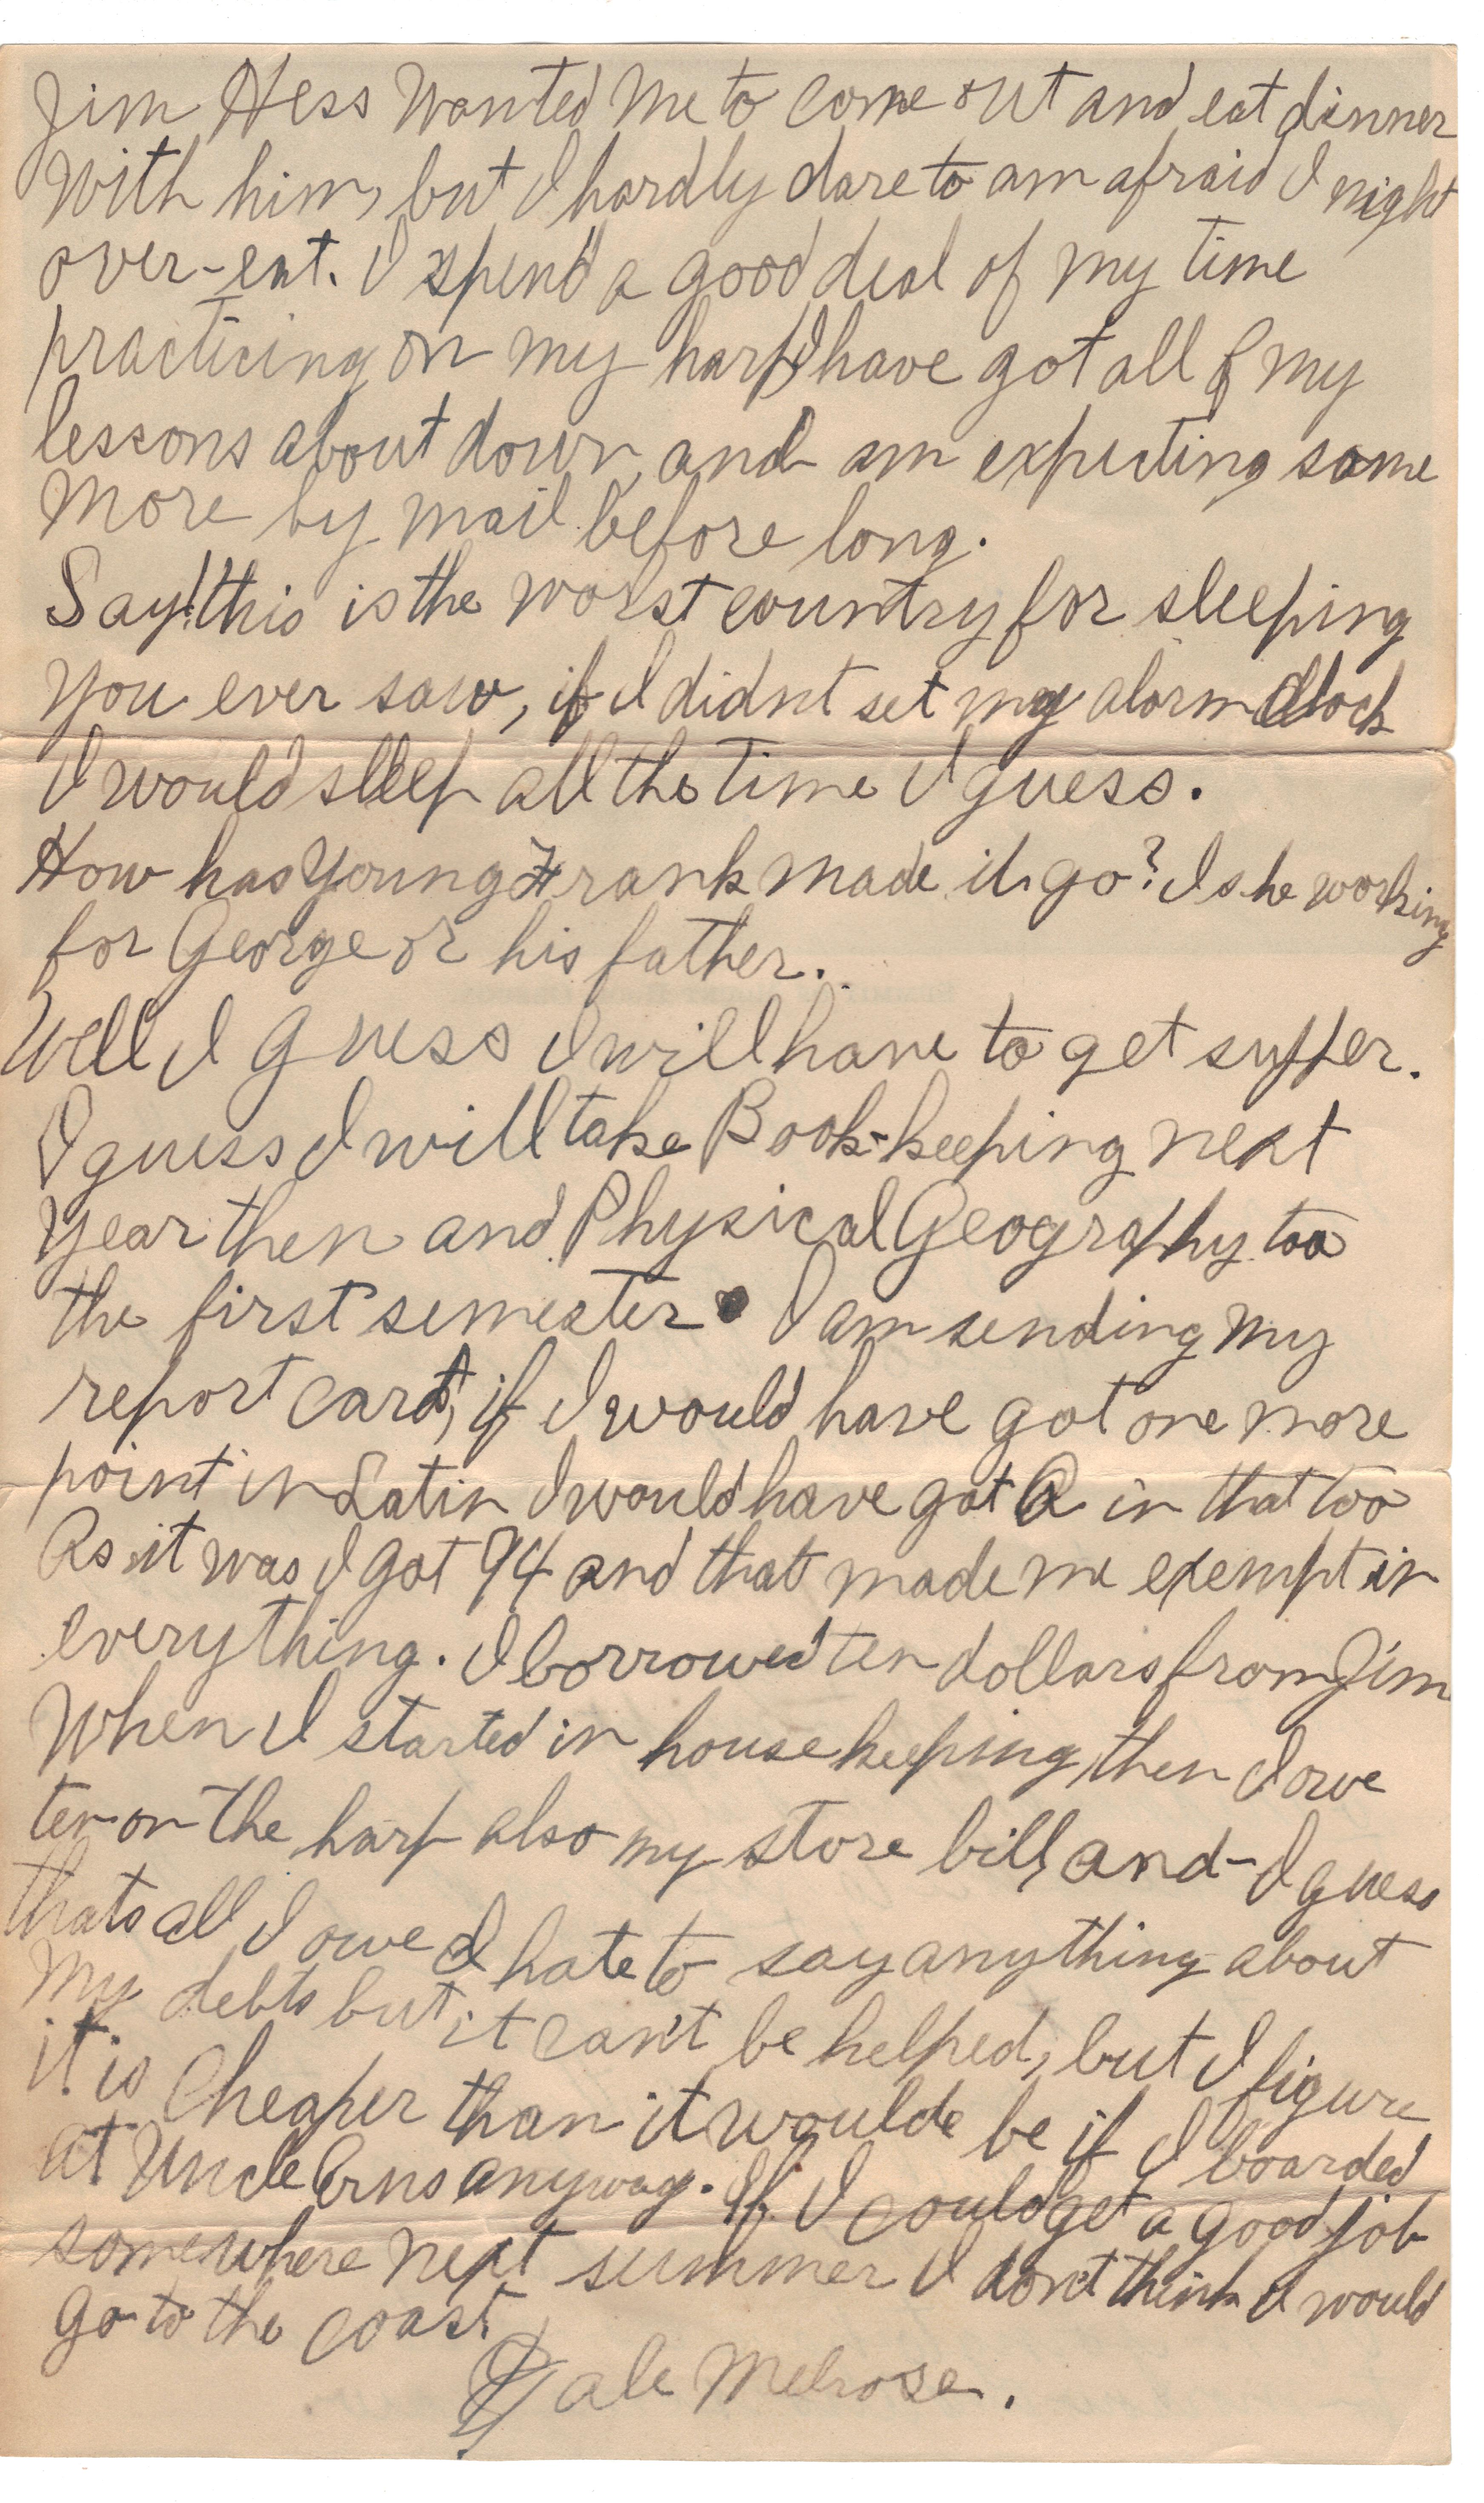 Jim Hess Wanted Me to come out and eat dinner
With him, but I hardly dare to am afraid I might
over-eat. I spend a good deal of my time
practicing on my harp I have got all of my
lessons about down, and am expecting some
more by mail before long.
Say! this is the worst country for sleeping
you ever saw, if I didnt set my alarm clock
I would sleep all the time I guess.
How has Young Frank made it go? Is he working
for George or his father.
Well I guess I will have to get supper.
I guess I will take Book-keeping next
Year then and Physical Geography too
the first semester. I am sending my
report card, if I would have got one more
point in Latin I would have got A in that too
As it was I got 94 and that made me exempt in
everything. I borrowed ten dollars from Jim
When I started in house keeping, then I owe
ten on the harp also my store bill, and - I guess
thats all I owe I hate to say anything about
My debts but it can't be helped, but I figure
it is Cheaper than it woulde be if I boarded
at Uncle Arns anyway. If I could get a good job
somewhere next summer I don't think I would
go to the coast.
Dale Melrose.